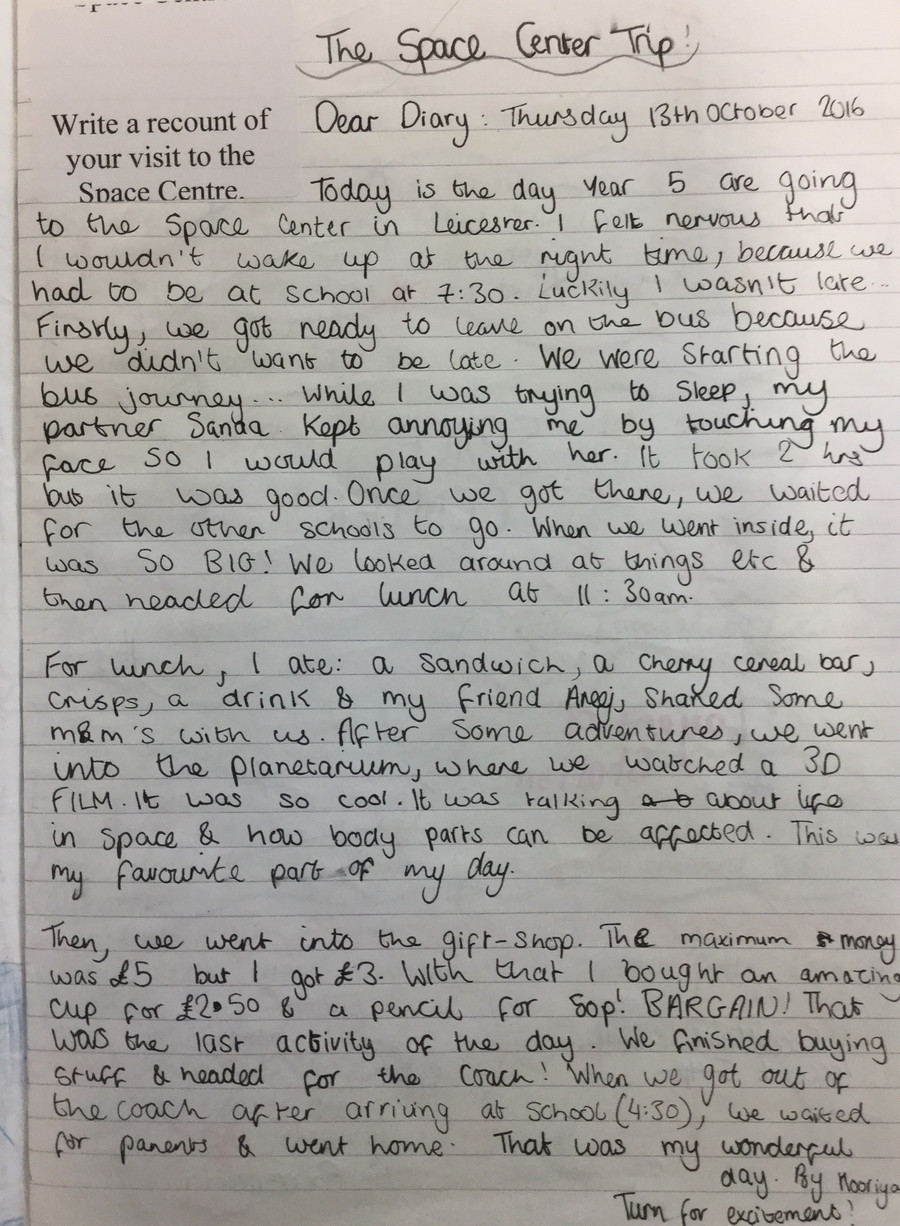 The Space Center Trip!
Write a recount of
your visit to the
Space Centre.
Dear Diary: Thursday 13th October 2016
Today is the day Year 5 are going
to the Space Center in Leicester. I felt nervous that
I wouldn't wake up at the right time, because we
had to be at school at 7:30. Luckily I wasn't late...
Firstly, we got ready to leave on the bus because
we didn't want to be late. We were starting the
bus journey... While I was trying to sleep, my
partner Sanda kept annoying me by touching my
face so I would play with her. It took 2 hrs
but it was good. Once we got there, we waited
for the other schools to go. When we went inside, it
was SO BIG! We looked around at things etc &
then headed for lunch at 11:30am.
For lunch, I ate: a sandwich, a cherry cereal bar,
crisps, a drink & my friend Areej, shared some
m&m's with us. After some adventures, we went
into the planetarium, where we watched a 3D
FILM. It was so cool. It was talking about life
in space & how body parts can be affected. This was
my favourite part of my day.
Then, we went into the gift-shop. The maximum money
was £5 but I got £3. With that I bought an amazing
cup for £2.50 & a pencil for 50p! BARGAIN! That
was the last activity of the day. We finished buying
stuff & headed for the coach! When we got out of
the coach after arriving at school (4:30), we waited
for parents & went home. That was my wonderful
day. By Nooriya
Turn for excitement!